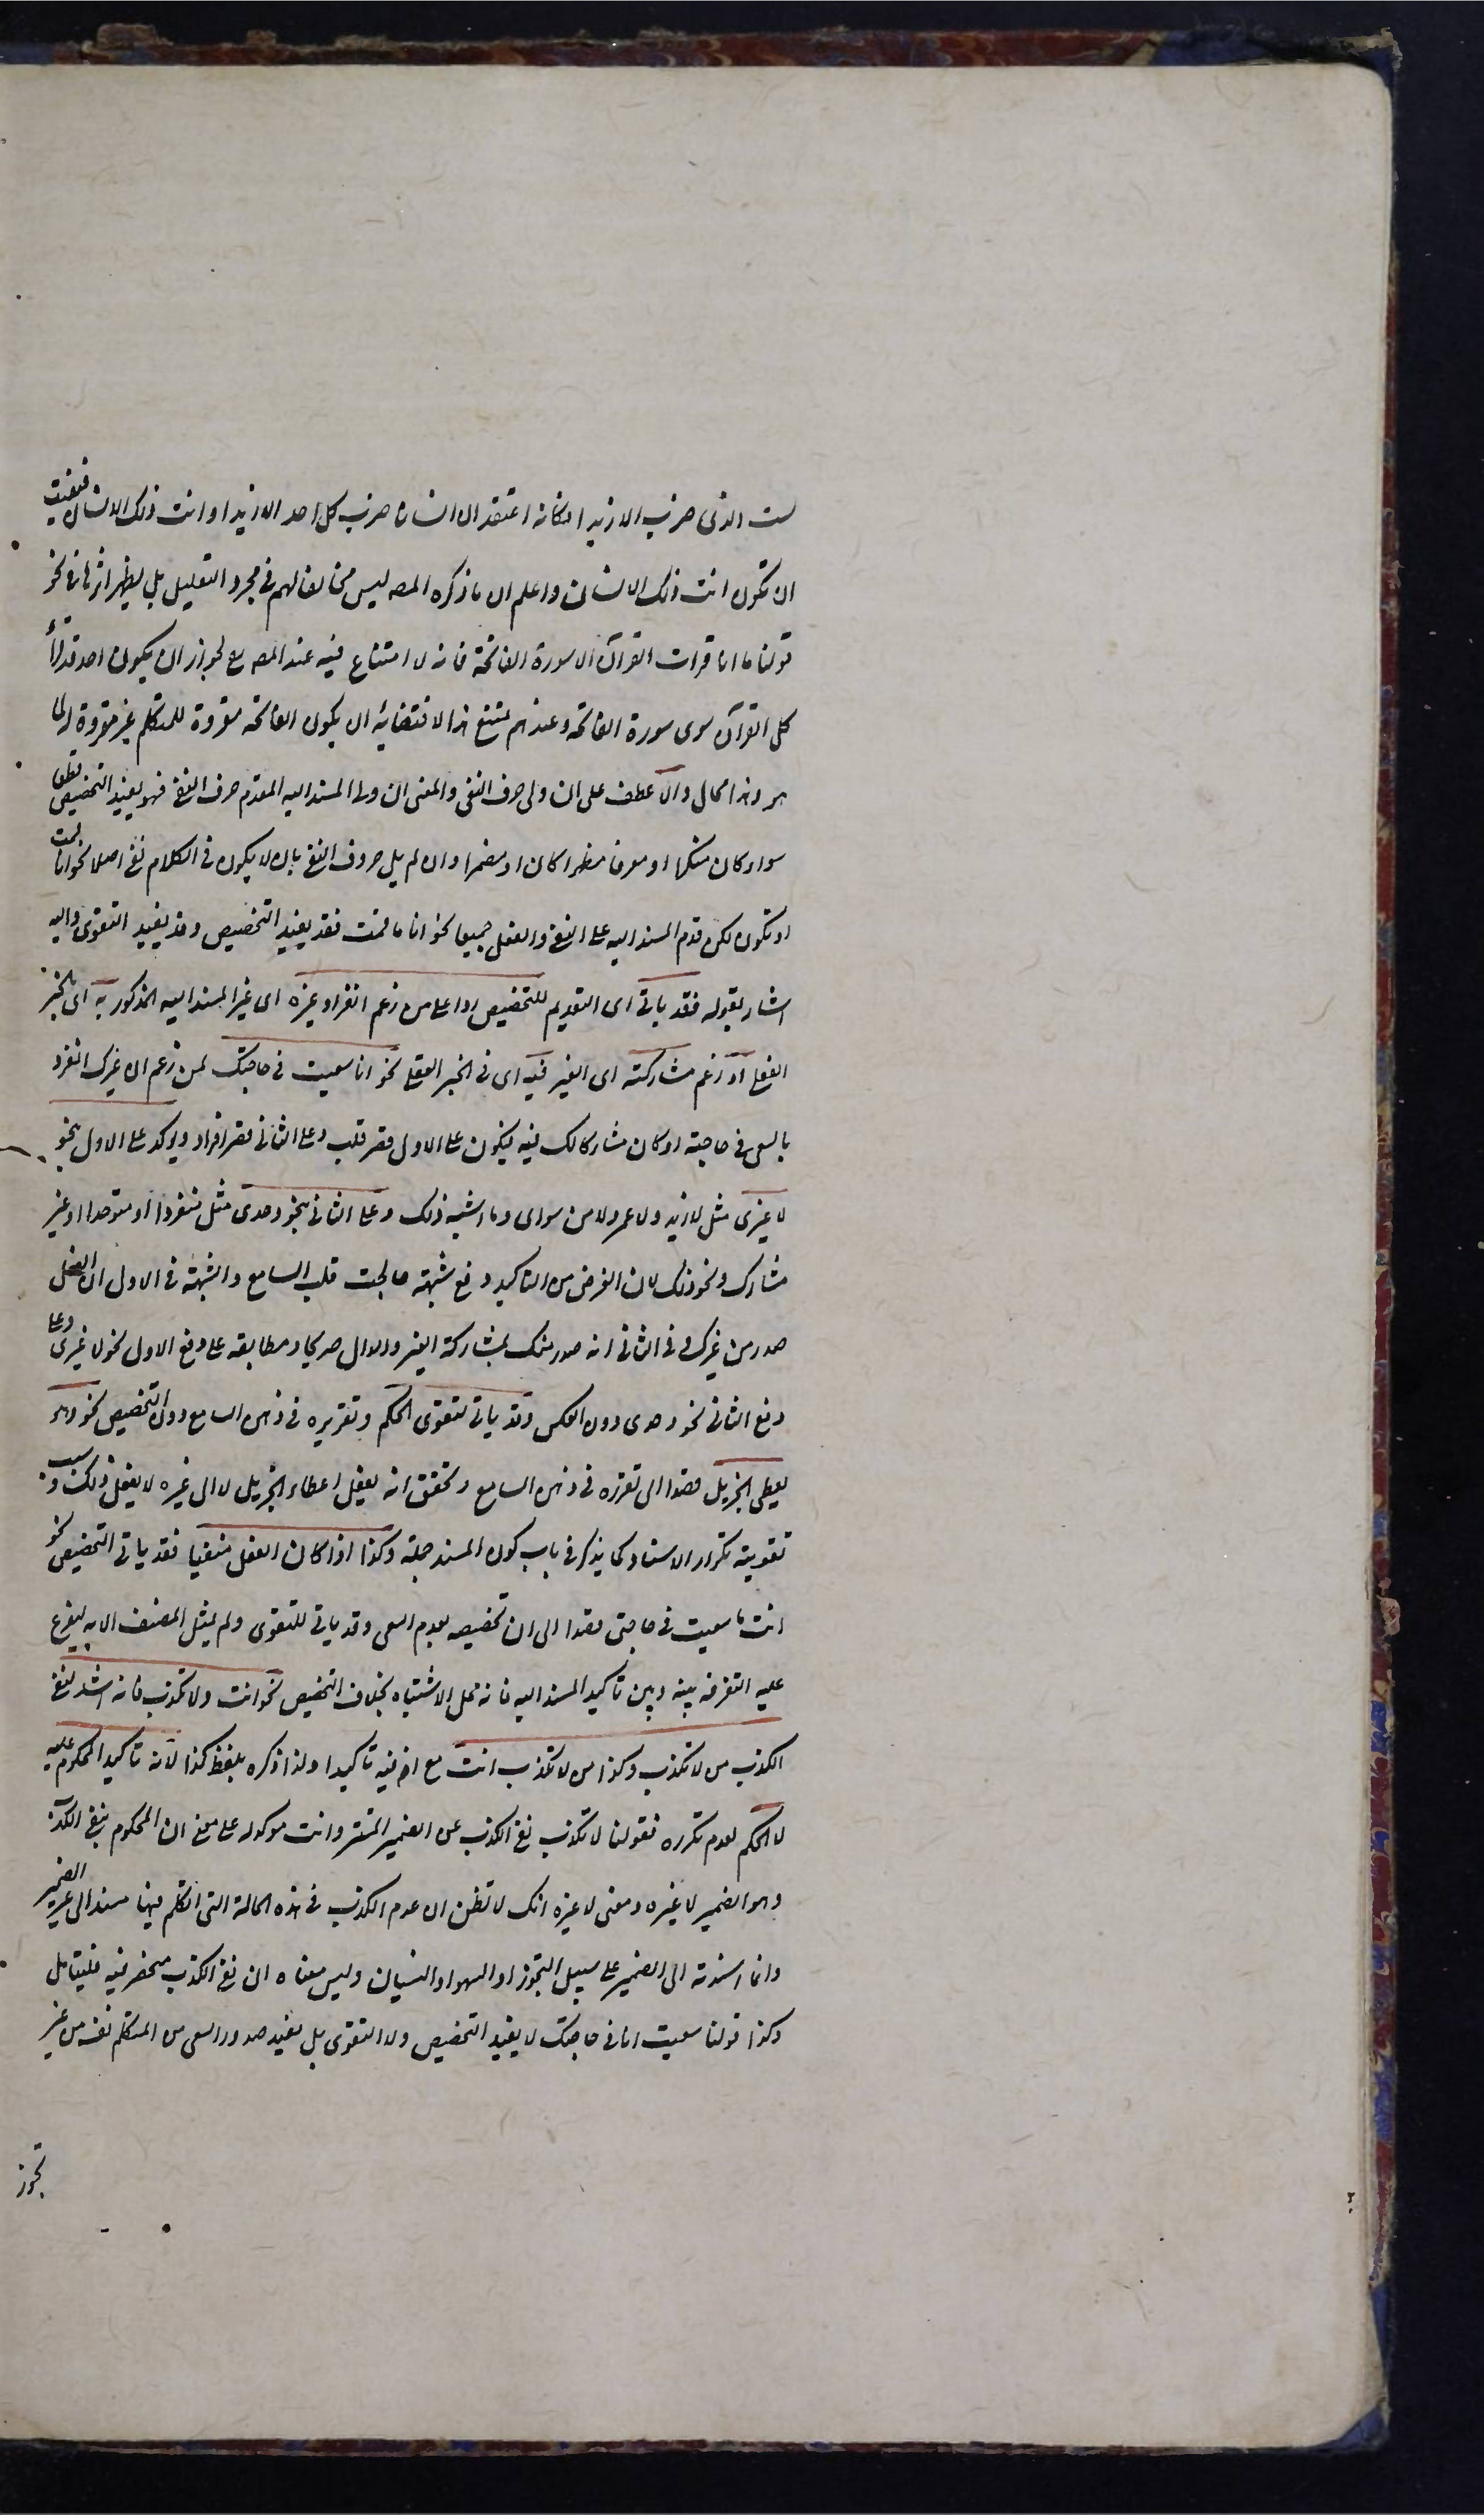 لست الذى ضرب الا زيدا فكانه اعتقد ان انسانا ضرب كل احد الا زيدا او انت ذلك الانسان فنفيت
ان تكون انت ذلك الانسان واعلم ان ما ذكره المصـ ليس مخالفا لهم فى مجرد التعليل بل يظهر اثرها فى نحو
قولنا ما انا قرات القرآن الا سورة الفاتحة فانه لا امتناع فيه عند المصـ لجواز ان يكون احد قد قرأ
كل القرآن سوى سورة الفاتحة وعندهم يمتنع هذا لاقتضائه ان يكون الفاتحة مقروة للمتكلم غير مقروة له
هو وهذا محال والا عطف على ان ولى حرف النفى والمعنى ان ولى المسند اليه المقدم حرف النفى فهو يفيد التخصيص قطعا
سواء كان منكرا او معرفا مظهرا كان او مضمرا وان لم يل حرف النفى بان لا يكون فى الكلام نفى اصلا نحو انا قمت
او تكون لكن قدم المسند اليه على النفى والفعل جميعا نحو انا ما قمت فقد يفيد التخصيص وقد يفيد التقوى واليه
اشار بقوله فقد ياتى اى التقديم للتخصيص ردا على من زعم انفراد غيره اى غير المسند اليه المذكور به اى بالخبر
الفعلى او زعم مشاركته اى الغير فيه اى فى الخبر الفعلى نحو انا سعيت فى حاجتك لمن زعم ان غيرك انفرد
بالسعى فى حاجته او كان مشاركا لك فيه فيكون على الاول قصر قلب وعلى الثانى قصر افراد ويؤكد على الاول بنحو
لا غيرى مثل لا زيد ولا عمرو لا من سواى وما اشبه ذلك وعلى الثانى بنحو وحدى مثل منفردا او متوحدا او غير
مشارك ونحو ذلك لان الغرض من التاكيد دفع شبهة خالجت قلب السامع والشبهة فى الاول ان الفعل
صدر من غيرك وفى الثانى انه صدر منك بمشاركة الغير والدال صريحا ومطابقة على دفع الاول نحو لا غيرى وعلى
دفع الثانى نحو وحدى دون العكس وقد ياتى لتقوى الحكم وتقريره فى ذهن السامع دون التخصيص نحو هو
يعطى الجزيل قصدا الى تقرره فى ذهن السامع وتحقق انه يفعل اعطاء الجزيل لا الى غيره لا يفعل ذلك وسبب
تقويته تكرار الاسناد كما يذكر فى باب كون المسند جملة وكذا اذا كان الفعل منفيا فقد ياتى التخصيص نحو
انت ما سعيت فى حاجتى قصدا الى ان تخصيصه بعدم السعى وقد ياتى للتقوى ولم يمثل المصنف الا به ليفرع
عليه التفرقة بينه وبين تاكيد المسند اليه فانه محل الاشتباه بخلاف التخصيص نحو انت ولا تكذب فانه اشد لنفى
الكذب من لا تكذب وكذا من لا تكذب انت مع ان فيه تاكيدا ولذا ذكره بلفظ كذا لانه تاكيد المحكوم عليه
لا الحكم لعدم تكرره فقولنا لا تكذب نفى الكذب عن الضمير المستتر وانت موكد له على معنى ان المحكوم بنفى الكذب
وهو الضمير لا غيره ومعنى لا غيره انك لا تظن ان عدم الكذب فى هذه الحالة التى اتكلم فيها مسند الى غير الضمير
وانما اسندته الى الضمير على سبيل التجوز او السهو او النسيان وليس معناه ان نفى الكذب منحصر فيه فليتامل
وكذا قولنا سعيت انا فى حاجتك لا يفيد التخصيص ولا التقوى بل يفيد صدور السعى من المتكلم نفسه من غير
تجوز